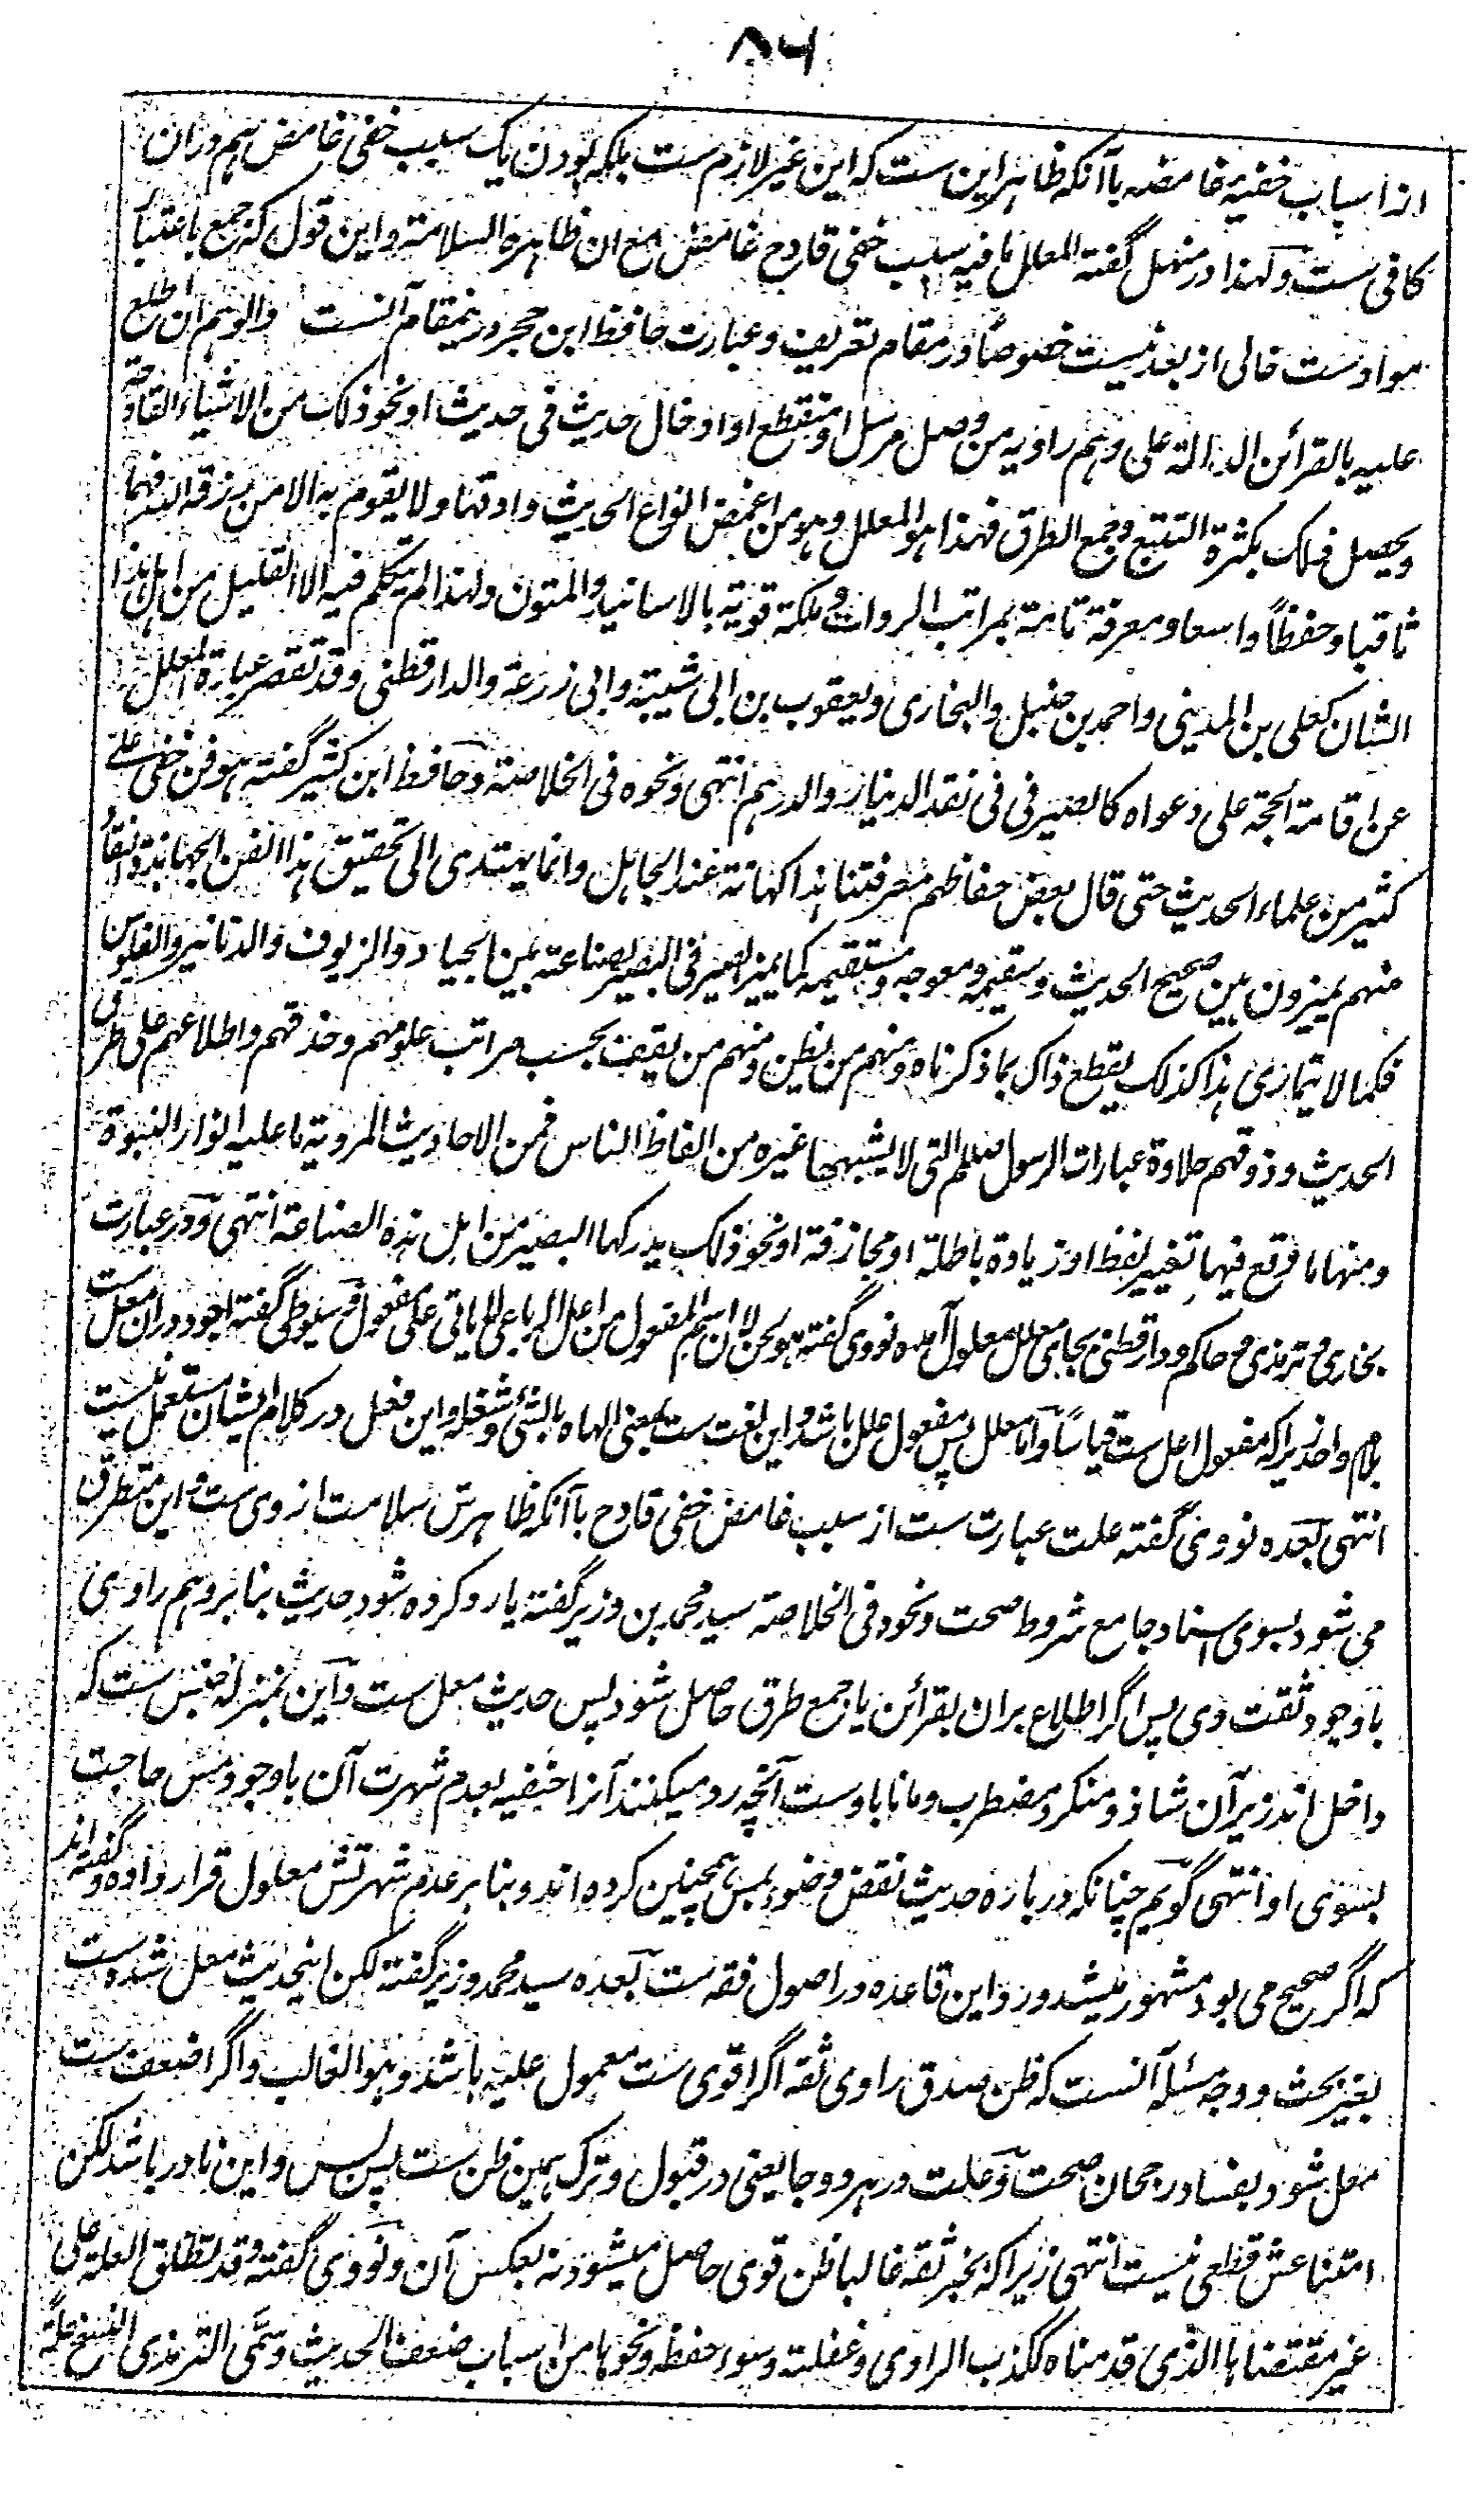 ۸۶
از اسباب خفیه غامضه با آنکه ظاهر این ست که این غیر لازم ست بلکه بودن یک سبب خفی غامض هم دران
کافی ست و لهذا در منهل گفته المعلل ما فیه سبب خفی قادح غامض مع ان ظاهره السلامة و این قول که جمع باعتبار
مواد ست خالی از بعد نیست خصوصاً در مقام تعریف و عبارت حافظ ابن حجر درینمقام آنست والوهم ان اطلع
علیه بالقرائن الدالة علی وهم راویه من وصل مرسل او منقطع او ادخال حدیث فی حدیث او نحو ذلک من الاشیاء القادحة
ویحصل ذلک بکثرة التتبع وجمع الطرق فهذا هو المعلل وهو من اغمض انواع الحدیث وادقها ولا یقوم به الا من رزقه الله فهما
ثاقبا وحفظاً واسعا ومعرفة تامة بمراتب الروات وملکة قویة بالاسانید والمتون ولهذا لم یتکلم فیه الا القلیل من اهل هذا
الشان کعلی بن المدینی واحمد بن حنبل والبخاری ویعقوب بن ابی شیبة وابی زرعة والدارقطنی وقد تقصر عبارة المعلل
عن اقامة الحجة علی دعواه کالصیرفی فی نقد الدینار والدرهم انتهی ونحوه فی الخلاصة و حافظ ابن کثیر گفته هو فن خفی علی
کثیر من علماء الحدیث حتی قال بعض حفاظهم معرفتنا بهذا کهانة عند الجاهل وانما یهتدی الی تحقیق هذا الفن الجهابذة النقاد
منهم یمیزون بین صحیح الحدیث وسقیمه ومعوجه ومستقیمه کما یمیز الصیرفی البصیر بصناعته بین الجیاد والزیوف والدنانیر والفلوس
فکما لا یتماری هذا کذلک یقطع ذاک بما ذکرناه ومنهم من یظن ومنهم من یقف بحسب مراتب علومهم وحذقهم واطلاعهم علی طرق
الحدیث وذوقهم حلاوة عبارات الرسول صلعم التی لا یشبهها غیره من الفاظ الناس فمن الاحادیث المرویة ما علیه انوار النبوة
ومنها ما وقع فیها تغییر لفظ او زیادة باطلة او مجازفة او نحو ذلک یدرکها البصیر من اهل هذه الصناعة انتهی و در عبارت
بخاری و ترمذی و حاکم و دارقطنی بجای معلل معلول آمده نووی گفته هو لحن لان اسم المفعول من اعل الرباعی لا یاتی علی مفعول و سیوطی گفته اجود دران معل ست
بلام واحد زیرا که مفعول اعل ست قیاساً و اما معلل پس مفعول علل باشد و این لغت ست بمعنی الهاه بالشئ و شغله و این فعل در کلام ایشان مستعمل نیست
انتهی بعده نووی گفته علت عبارت ست از سبب غامض خفی قادح با آنکه ظاهرش سلامت از وی ست و این متطرق
می شود بسوی اسناد جامع شروط صحت ونحوه فی الخلاصة سید محمد بن وزیر گفته یا رد کرده شود حدیث بنا بر وهم راوی
با وجود ثقت وی پس اگر اطلاع بران بقرائن یا جمع طرق حاصل شود پس حدیث معل ست و این بمنزله جنس ست که
داخل اند زیر آن شاذ و منکر و مضطرب و مانا باوست آنچه رد میکنند آنرا حنفیه بعدم شهرت آن باوجود مس حاجت
بسوی او انتهی گویم چنانکه در باره حدیث نقض وضوء بمس همچنین کرده اند و بنا بر عدم شهرتش معلول قرار داده و گفته اند
که اگر صحیح می بود مشهور میشد ورد این قاعده در اصول فقه ست بعده سید محمد وزیر گفته لکن اینحدیث معل شده ست
بغیر بحث و وجه مسئله آنست که ظن صدق راوی ثقه اگر اقوی ست معمول علیه باشد وهو الغالب و اگر اضعف ست
معل شود و بفساد رجحان صحت و علت در هر دو جا یعنی در قبول و ترک همین ظن ست لیس و این نادر باشد لکن
امتناعش قطعی نیست انتهی زیرا که بخبر ثقه غالبا ظن قوی حاصل میشود نه بعکس آن و نووی گفته وقد تطلق العلة علی
غیر مقتضاها الذی قدمناه ککذب الراوی وغفلته وسوء حفظه ونحوها من اسباب ضعف الحدیث وسمی الترمذی النسخ علة